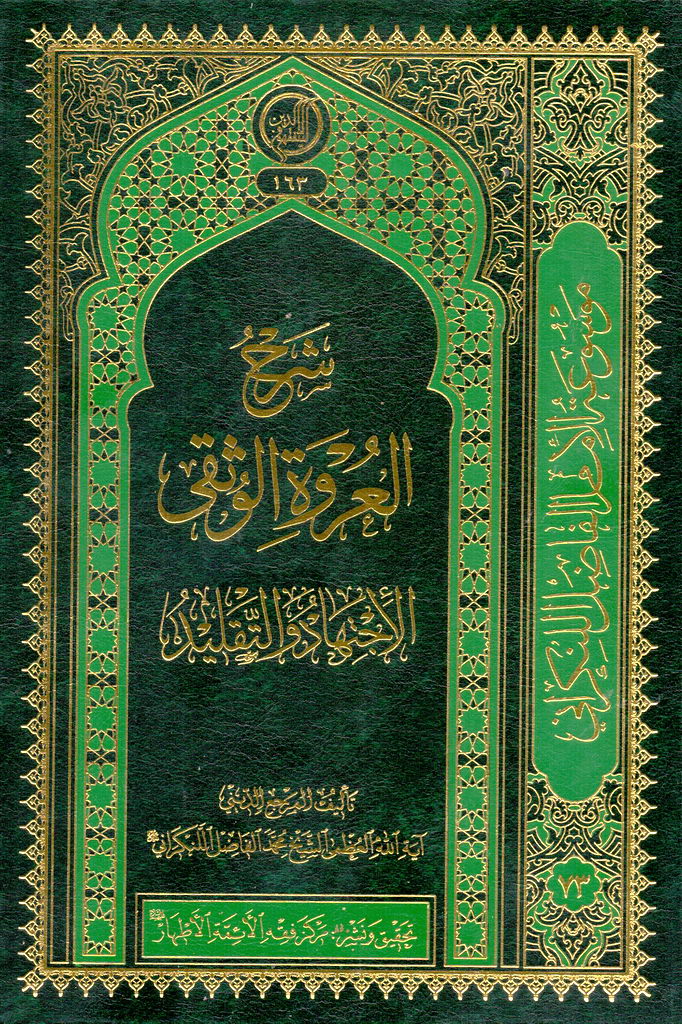 ١٦٣
شَرحُ
العُروَةِ الوُثقى
الاجتهادُ والتَّقليدُ
تأليف المرجع الديني
آية الله العظمى الشيخ محمّد الفاضل اللنكراني
تحقيق ونشر: مركز فقه الأئمّة الأطهار
موسوعة الإمام الفاضل اللنكراني
٧٣